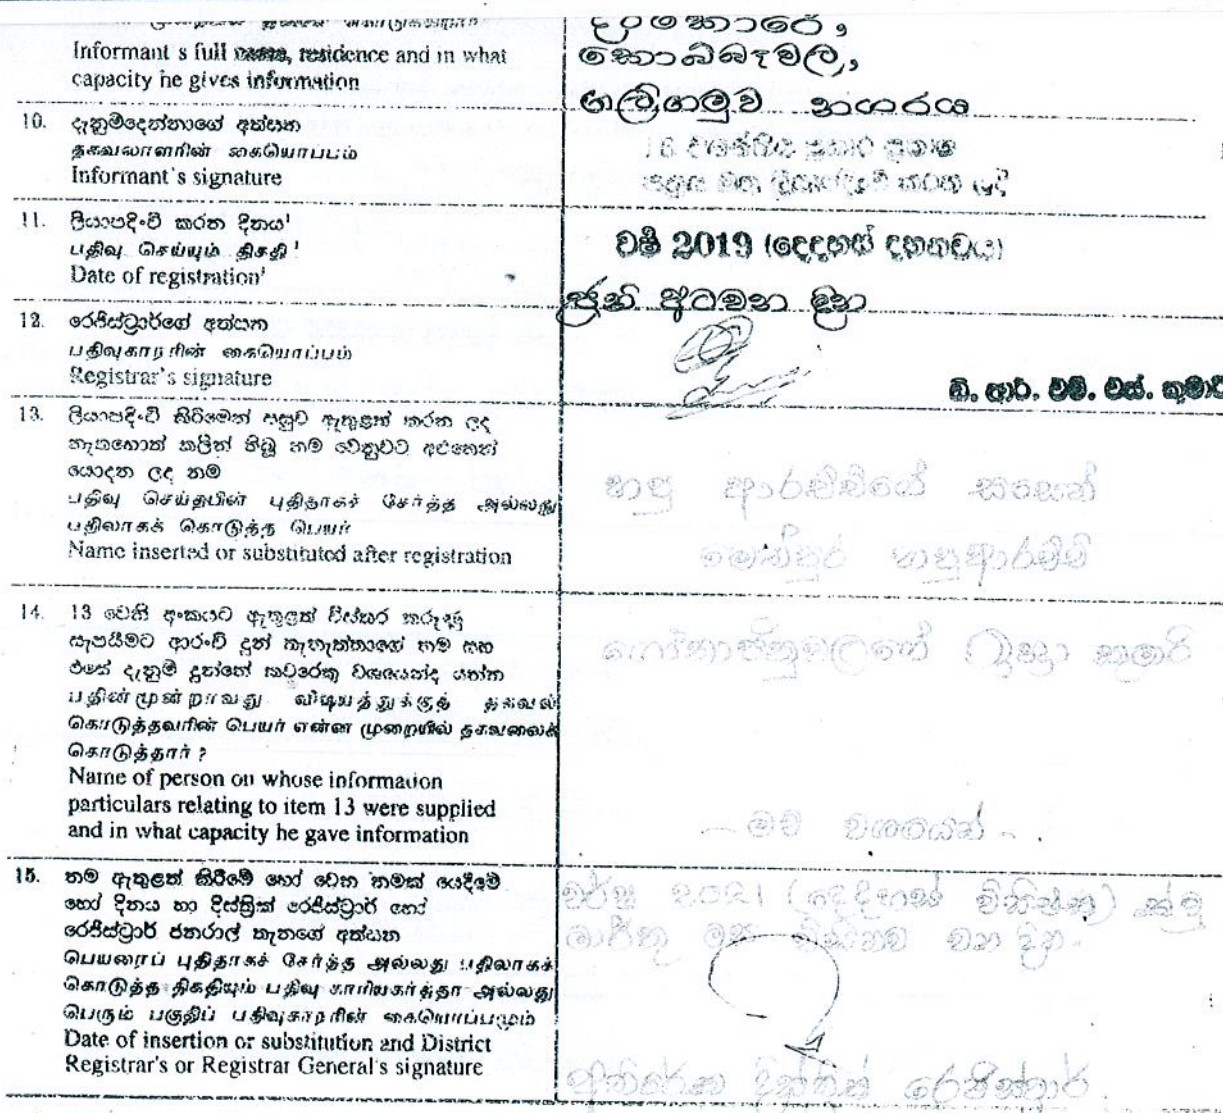 දිවංකාරේ,
Informant s full name, residence and in what
කොබ්බෑවල,
capacity he gives information
හල්ගමුව නගරය
10. දැනුම්දෙන්නාගේ අත්සන
தகவலாளரின் கையொப்பம்
Informant's signature
ලියාපදිංචි කරන ලදී
11. ලියාපදිංචි කරන දිනය¹
பதிவு செய்யும் திகதி¹
Date of registration¹
වර්ෂ 2019 (දෙදහස් දහනවය)
ජුනි අටවන දින
12. රෙජිස්ට්‍රාර්ගේ අත්සන
பதிவுகாரரின் கையொப்பம்
Registrar's signature
ඩී. ආර්. එම්. එස්. කුමාරි
13. ලියාපදිංචි කිරීමෙන් පසුව ඇතුළත් කරන ලද
නැතහොත් කලින් තිබූ නම වෙනුවට අළුතෙන්
යොදන ලද නම
பதிவு செய்தபின் புதிதாகச் சேர்த்த அல்லது
பதிலாகக் கொடுத்த பெயர்
Name inserted or substituted after registration
හපු ආරච්චිගේ සසෙන්
හපුආරච්චි
14. 13 වෙනි අංකයට ඇතුළත් විස්තර කරුණු
සැපයීමට ආරංචි දුන් තැනැත්තාගේ නම සහ
එසේ දැනුම් දුන්නේ කවරෙකු වශයෙන්ද යන්න
பதின்மூன்றாவது விடயத்துக்குத் தகவல்
கொடுத்தவரின் பெயர் என்ன முறையில் தகவலைக்
கொடுத்தார் ?
Name of person on whose information
particulars relating to item 13 were supplied
and in what capacity he gave information
කුමාරි
- මව වශයෙන් -
15. නම ඇතුළත් කිරීමේ හෝ වෙන නමක් යෙදීමේ
හෝ දිනය හා දිස්ත්‍රික් රෙජිස්ට්‍රාර් හෝ
රෙජිස්ට්‍රාර් ජනරාල් තැනගේ අත්සන
பெயரைப் புதிதாகச் சேர்த்த அல்லது பதிலாகக்
கொடுத்த திகதியும் பதிவு காரியகர்த்தா அல்லது
பெரும் பகுதிப் பதிவுகாரரின் கையொப்பமும்
Date of insertion or substitution and District
Registrar's or Registrar General's signature
වර්ෂ 2021 (දෙදහස් විසිඑක) ක්වූ
මාර්තු මස විසිනව වන දින
අතිරේක දිස්ත්‍රික් රෙජිස්ට්‍රාර්